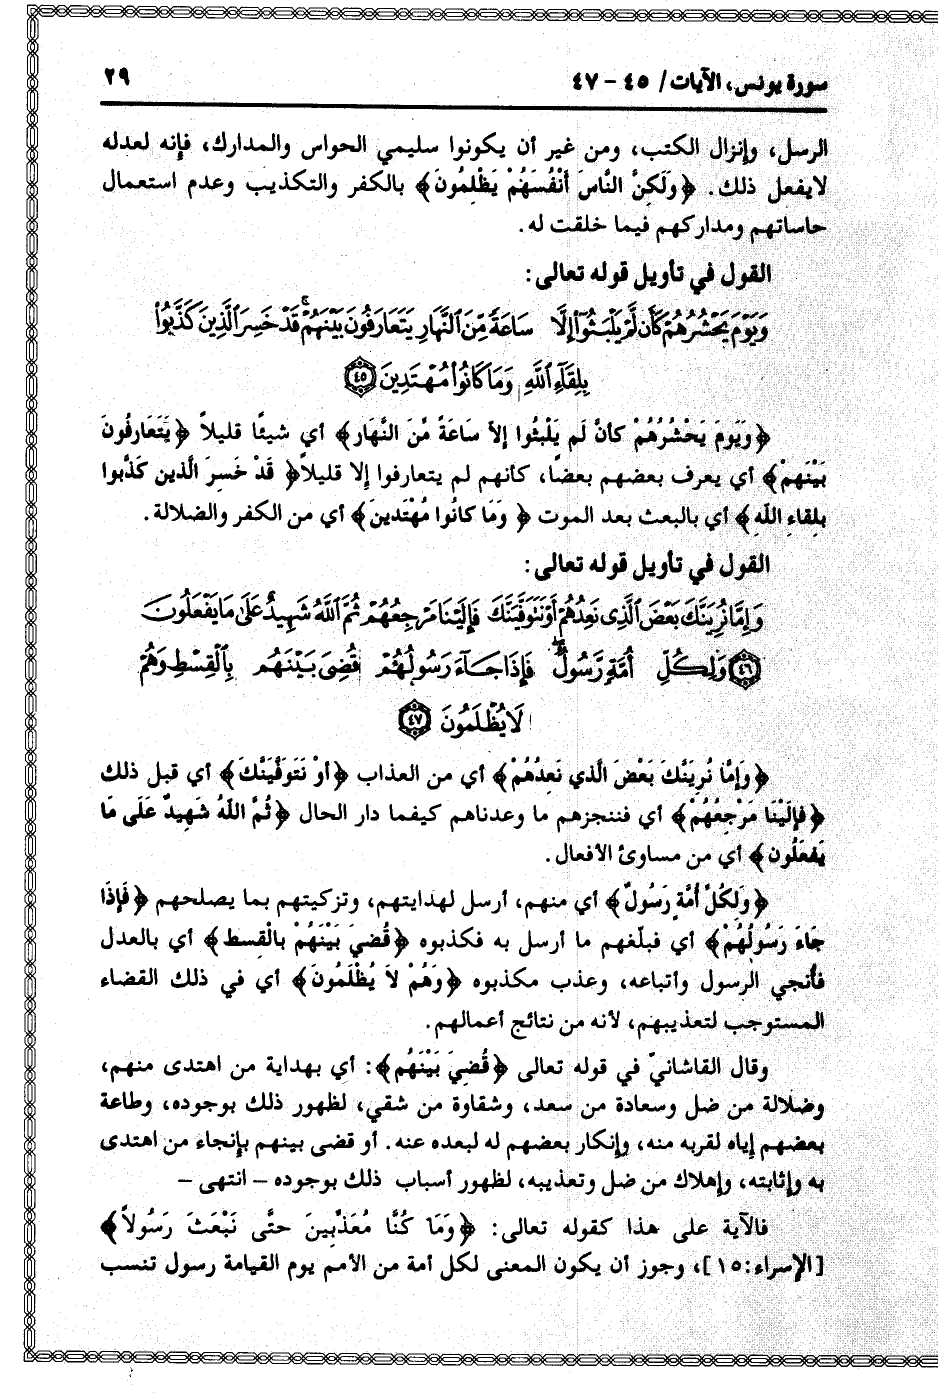 سورة يونس، الآيات/ ٤٥ - ٤٧
٢٩
الرسل، وإنزال الكتب، ومن غير أن يكونوا سليمي الحواس والمدارك، فإنه لعدله
لايفعل ذلك. ﴿وَلَكِنَّ النَّاسَ أنْفُسَهُمْ يَظْلِمُونَ﴾ بالكفر والتكذيب وعدم استعمال
حاساتهم ومداركهم فيما خلقت له.
القول في تأويل قوله تعالى:
وَيَوْمَ يَحْشُرُهُمْ كَأَن لَّمْ يَلْبَثُوٓا۟ إِلَّا سَاعَةً مِّنَ ٱلنَّهَارِ يَتَعَارَفُونَ بَيْنَهُمْ ۚ قَدْ خَسِرَ ٱلَّذِينَ كَذَّبُوا۟
بِلِقَآءِ ٱللَّهِ وَمَا كَانُوا۟ مُهْتَدِينَ ٤٥
﴿وَيَومَ يَحْشُرُهُمْ كأنْ لَم يَلْبثُوا إلاَّ سَاعَةً مِّنَ النَّهَار﴾ أي شيئًا قليلاً ﴿يَتَعَارفُونَ
بَيْنَهِمْ﴾ أي يعرف بعضهم بعضًا، كأنهم لم يتعارفوا إلا قليلاً﴿ قَدْ خَسِرَ الَّذين كَذَّبوا
بلِقاءِ اللَّهِ﴾ أي بالبعث بعد الموت ﴿ وَمَا كانُوا مُهْتَدينَ﴾ أي من الكفر والضلالة.
القول في تأويل قوله تعالى:
وَإِمَّا نُرِيَنَّكَ بَعْضَ ٱلَّذِى نَعِدُهُمْ أَوْ نَتَوَفَّيَنَّكَ فَإِلَيْنَا مَرْجِعُهُمْ ثُمَّ ٱللَّهُ شَهِيدٌ عَلَىٰ مَا يَفْعَلُونَ
٤٦ وَلِكُلِّ أُمَّةٍ رَّسُولٌ ۖ فَإِذَا جَآءَ رَسُولُهُمْ قُضِىَ بَيْنَهُم بِٱلْقِسْطِ وَهُمْ
لَا يُظْلَمُونَ ٤٧
﴿وَإِمَّا نُرِيَنَّكَ بَعْضَ الَّذي نَعِدُهُمْ﴾ أي من العذاب ﴿أوْ نَتَوفَّيَنَّكَ﴾ أي قبل ذلك
﴿فإلَيْنَا مَرْجِعُهُمْ﴾ أي فننجزهم ما وعدناهم كيفما دار الحال ﴿ثُمَّ اللَّهُ شَهِيدٌ عَلَى مَا
يَفعَلُون﴾ أي من مساوئ الأفعال.
﴿وَلِكُلِّ أُمَّةٍ رَسُولٌ﴾ أي منهم، أرسل لهدايتهم، وتزكيتهم بما يصلحهم ﴿فَإِذَا
جَاءَ رَسُولُهُمْ﴾ أي فبلّغهم ما أرسل به فكذبوه ﴿قُضيَ بَيْنَهُمْ بالْقِسط﴾ أي بالعدل
فأنجي الرسول وأتباعه، وعذب مكذبوه ﴿وَهُمْ لاَ يُظْلَمُونَ﴾ أي في ذلك القضاء
المستوجب لتعذيبهم، لأنه من نتائج أعمالهم.
وقال القاشانيّ في قوله تعالى ﴿قُضِيَ بَيْنَهُم﴾: أي بهداية من اهتدى منهم،
وضلالة من ضل وسعادة من سعد، وشقاوة من شقي، لظهور ذلك بوجوده، وطاعة
بعضهم إياه لقربه منه، وإنكار بعضهم له لبعده عنه. أو قضى بينهم بإنجاء من اهتدى
به وإثابته، وإهلاك من ضل وتعذيبه، لظهور أسباب ذلك بوجوده – انتهى –
فالآية على هذا كقوله تعالى: ﴿وَمَا كُنَّا مُعَذِّبِينَ حتَّى نَبْعَثَ رَسُولاً﴾
[الإسراء:١٥]، وجوز أن يكون المعنى لكل أمة من الأمم يوم القيامة رسول تنسب